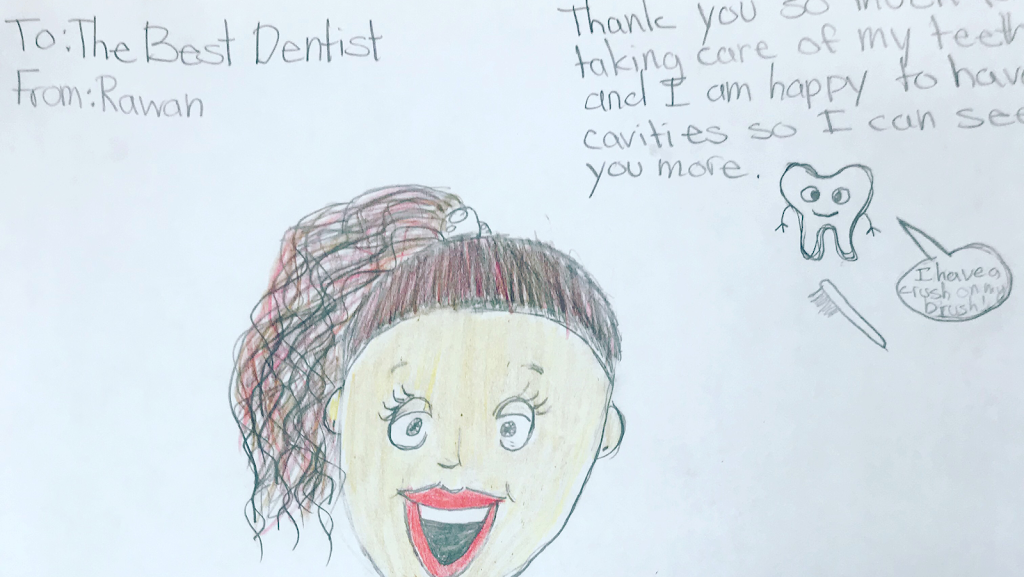 To: The Best Dentist
From: Rawan
Thank you so much
taking care of my teeth
and I am happy to have
cavities so I can see
you more.
I have a
crush on my
brush!